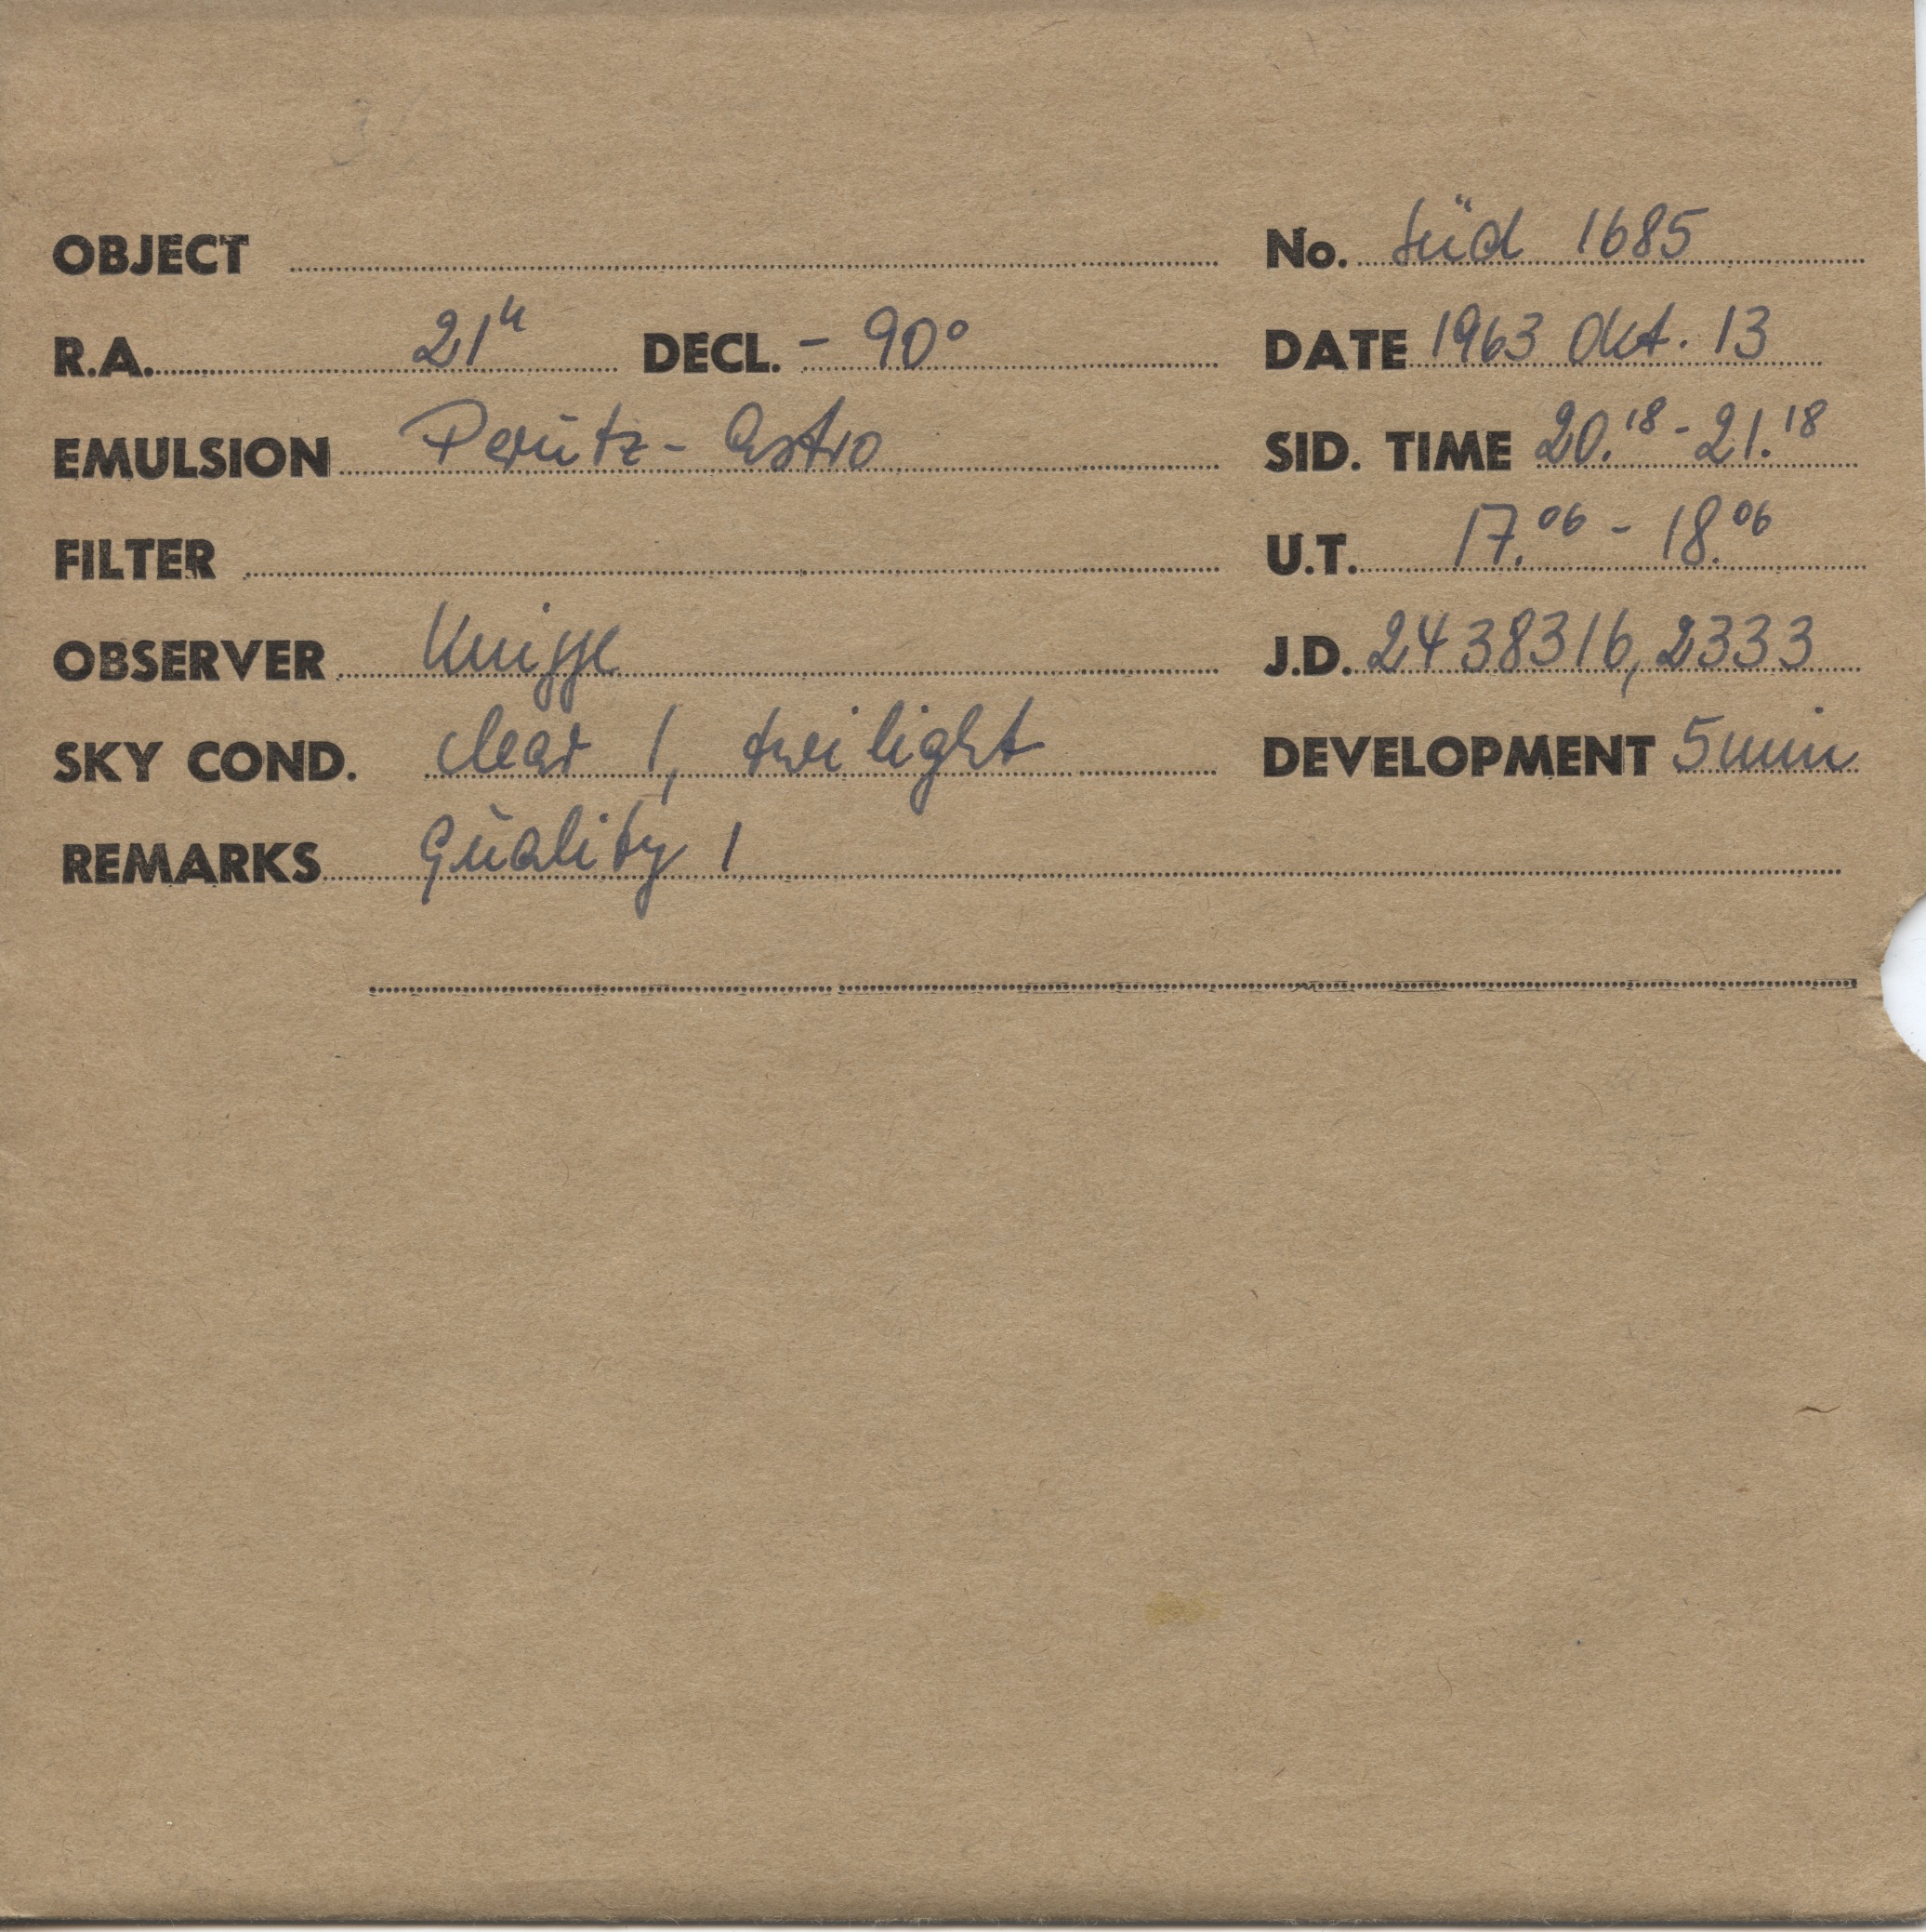 OBJECT No. Süd 1685
R.A. 21h DECL. - 90°
DATE 1963 Okt. 13
EMULSION Perutz - Astro
SID. TIME 20.18 - 21.18
FILTER
U.T. 17.06 - 18.06
OBSERVER Knigge
J.D. 2438316,2333
SKY COND. clear 1, twilight
DEVELOPMENT 5 min
REMARKS Quality 1